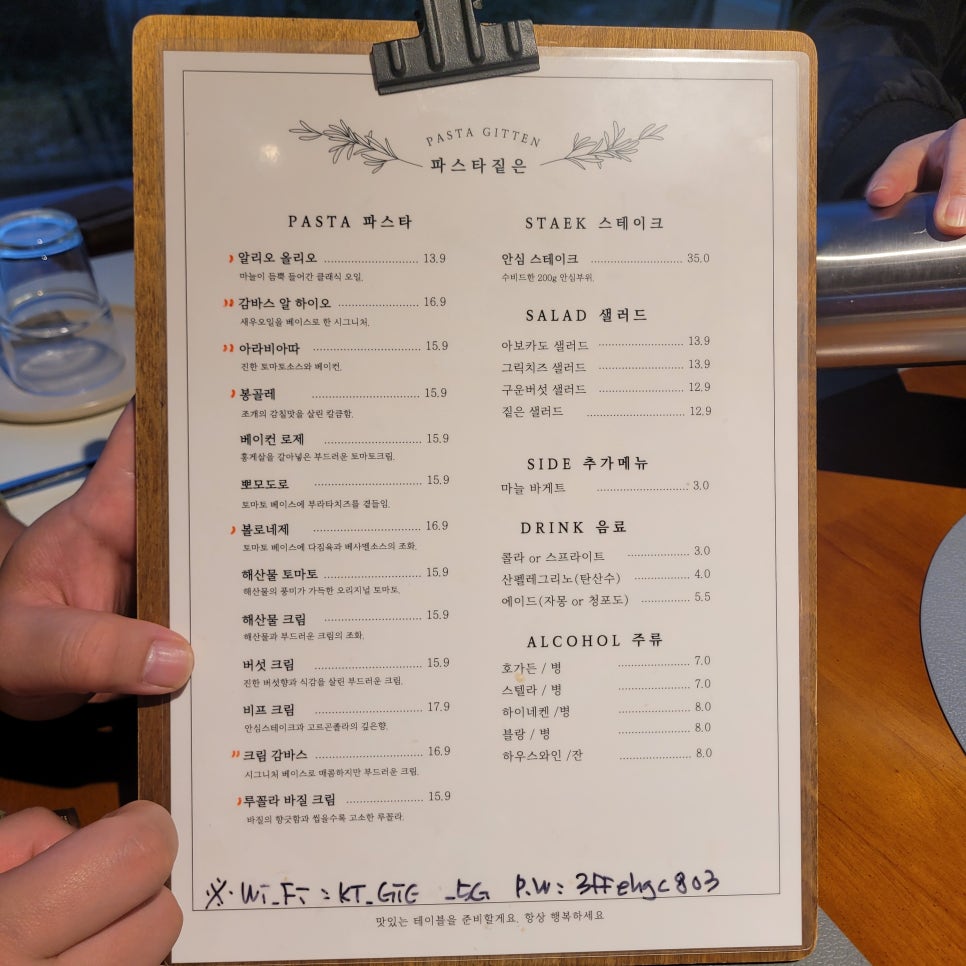 PASTA GITTEN
파스타짙은
PASTA 파스타
알리오 올리오 13.9
마늘이 듬뿍 들어간 클래식 오일.
감바스 알 하이오 16.9
새우오일을 베이스로 한 시그니처.
아라비아따 15.9
진한 토마토소스와 베이컨.
봉골레 15.9
조개의 감칠맛을 살린 깔끔함.
베이컨 로제 15.9
홍게살을 갈아넣은 부드러운 토마토크림.
뽀모도로 15.9
토마토 베이스에 부라타치즈를 곁들임.
볼로네제 16.9
토마토 베이스에 다짐육과 베사멜소스의 조화.
해산물 토마토 15.9
해산물의 풍미가 가득한 오리지널 토마토.
해산물 크림 15.9
해산물과 부드러운 크림의 조화.
버섯 크림 15.9
진한 버섯향과 식감을 살린 부드러운 크림.
비프 크림 17.9
안심스테이크과 고르곤졸라의 깊은향.
크림 감바스 16.9
시그니처 베이스로 매콤하지만 부드러운 크림.
루꼴라 바질 크림 15.9
바질의 향긋함과 씹을수록 고소한 루꼴라.
STAEK 스테이크
안심 스테이크 35.0
수비드한 200g 안심부위.
SALAD 샐러드
아보카도 샐러드 13.9
그릭치즈 샐러드 13.9
구운버섯 샐러드 12.9
짙은 샐러드 12.9
SIDE 추가메뉴
마늘 바게트 3.0
DRINK 음료
콜라 or 스프라이트 3.0
산펠레그리노(탄산수) 4.0
에이드(자몽 or 청포도) 5.5
ALCOHOL 주류
호가든 / 병 7.0
스텔라 / 병 7.0
하이네켄 /병 8.0
블랑 / 병 8.0
하우스와인 /잔 8.0
※. Wi_Fi : KT_GiG _5G P.W: 3ffehgc803
맛있는 테이블을 준비할게요. 항상 행복하세요